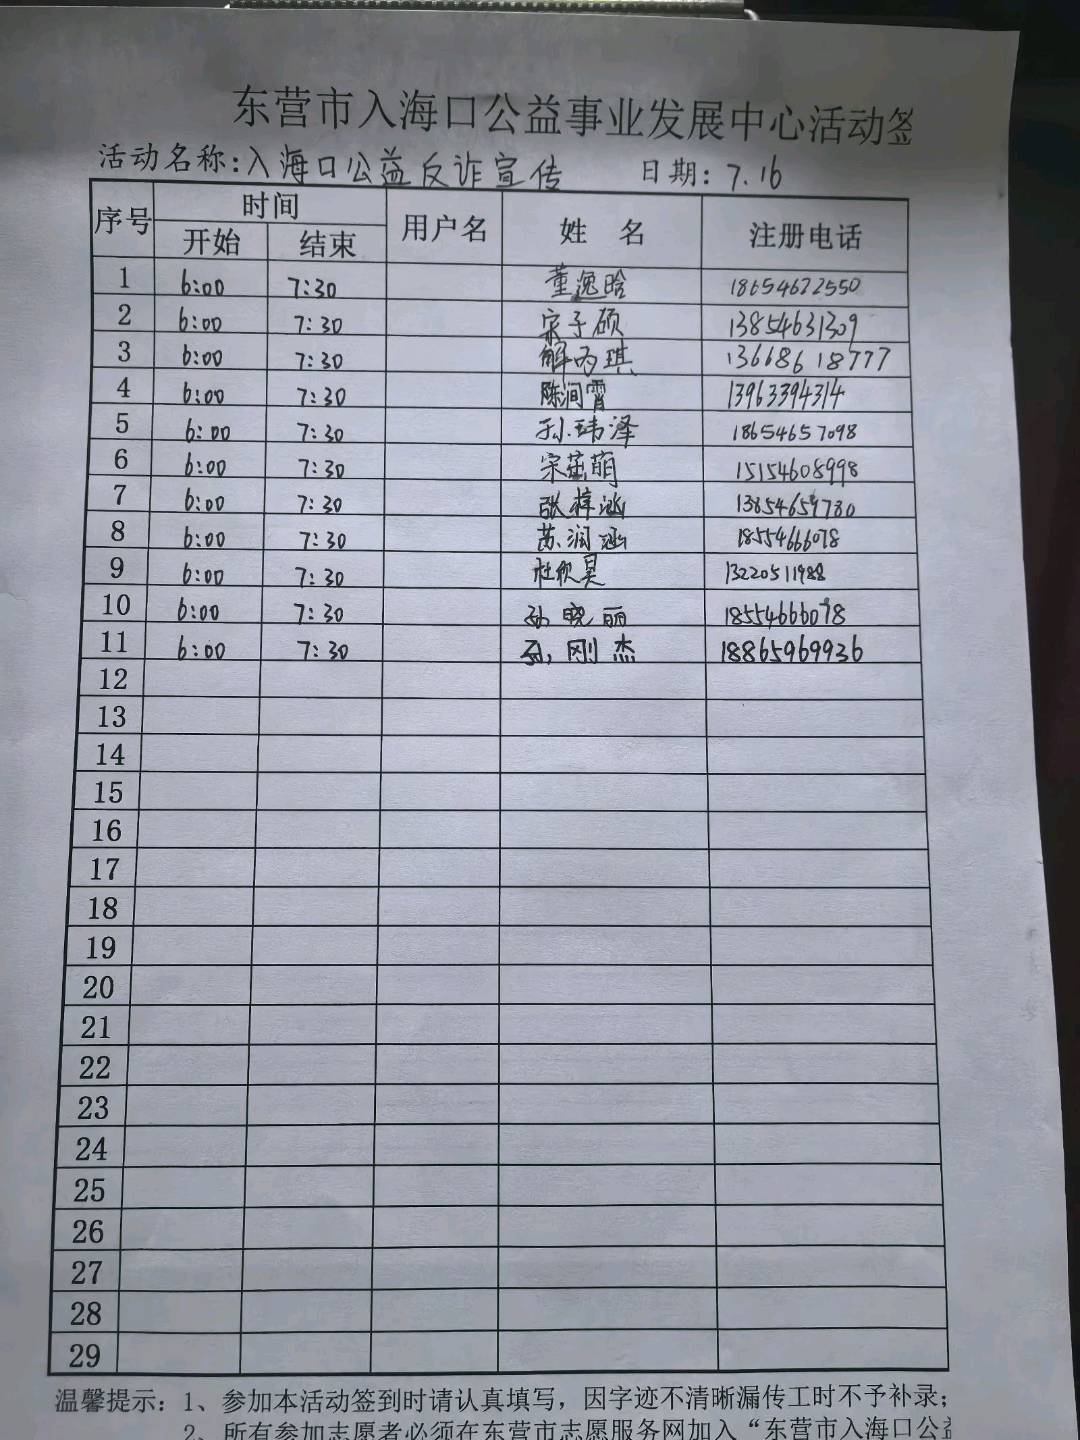 东营市入海口公益事业发展中心活动签
活动名称:入海口公益反诈宣传 日期:7.16
序号 时间 用户名 姓 名 注册电话
开始 结束
1 6:00 7:30 董逸晗 18654622550
2 6:00 7:30 宋子硕 13854631309
3 6:00 7:30 解丙琪 13668618777
4 6:00 7:30 陈润霄 13963394314
5 6:00 7:30 孙玮泽 18654657098
6 6:00 7:30 宋萌 15154608998
7 6:00 7:30 张梓涵 13854659780
8 6:00 7:30 苏润涵 18554666078
9 6:00 7:30 杜欣昊 13220511988
10 6:00 7:30 孙晓丽 18554666078
11 6:00 7:30 孙刚杰 18865969936
12
13
14
15
16
17
18
19
20
21
22
23
24
25
26
27
28
29
温馨提示:1、参加本活动签到时请认真填写,因字迹不清晰漏传工时不予补录;
2、所有参加志愿者必须在东营市志愿服务网加入“东营市入海口公益